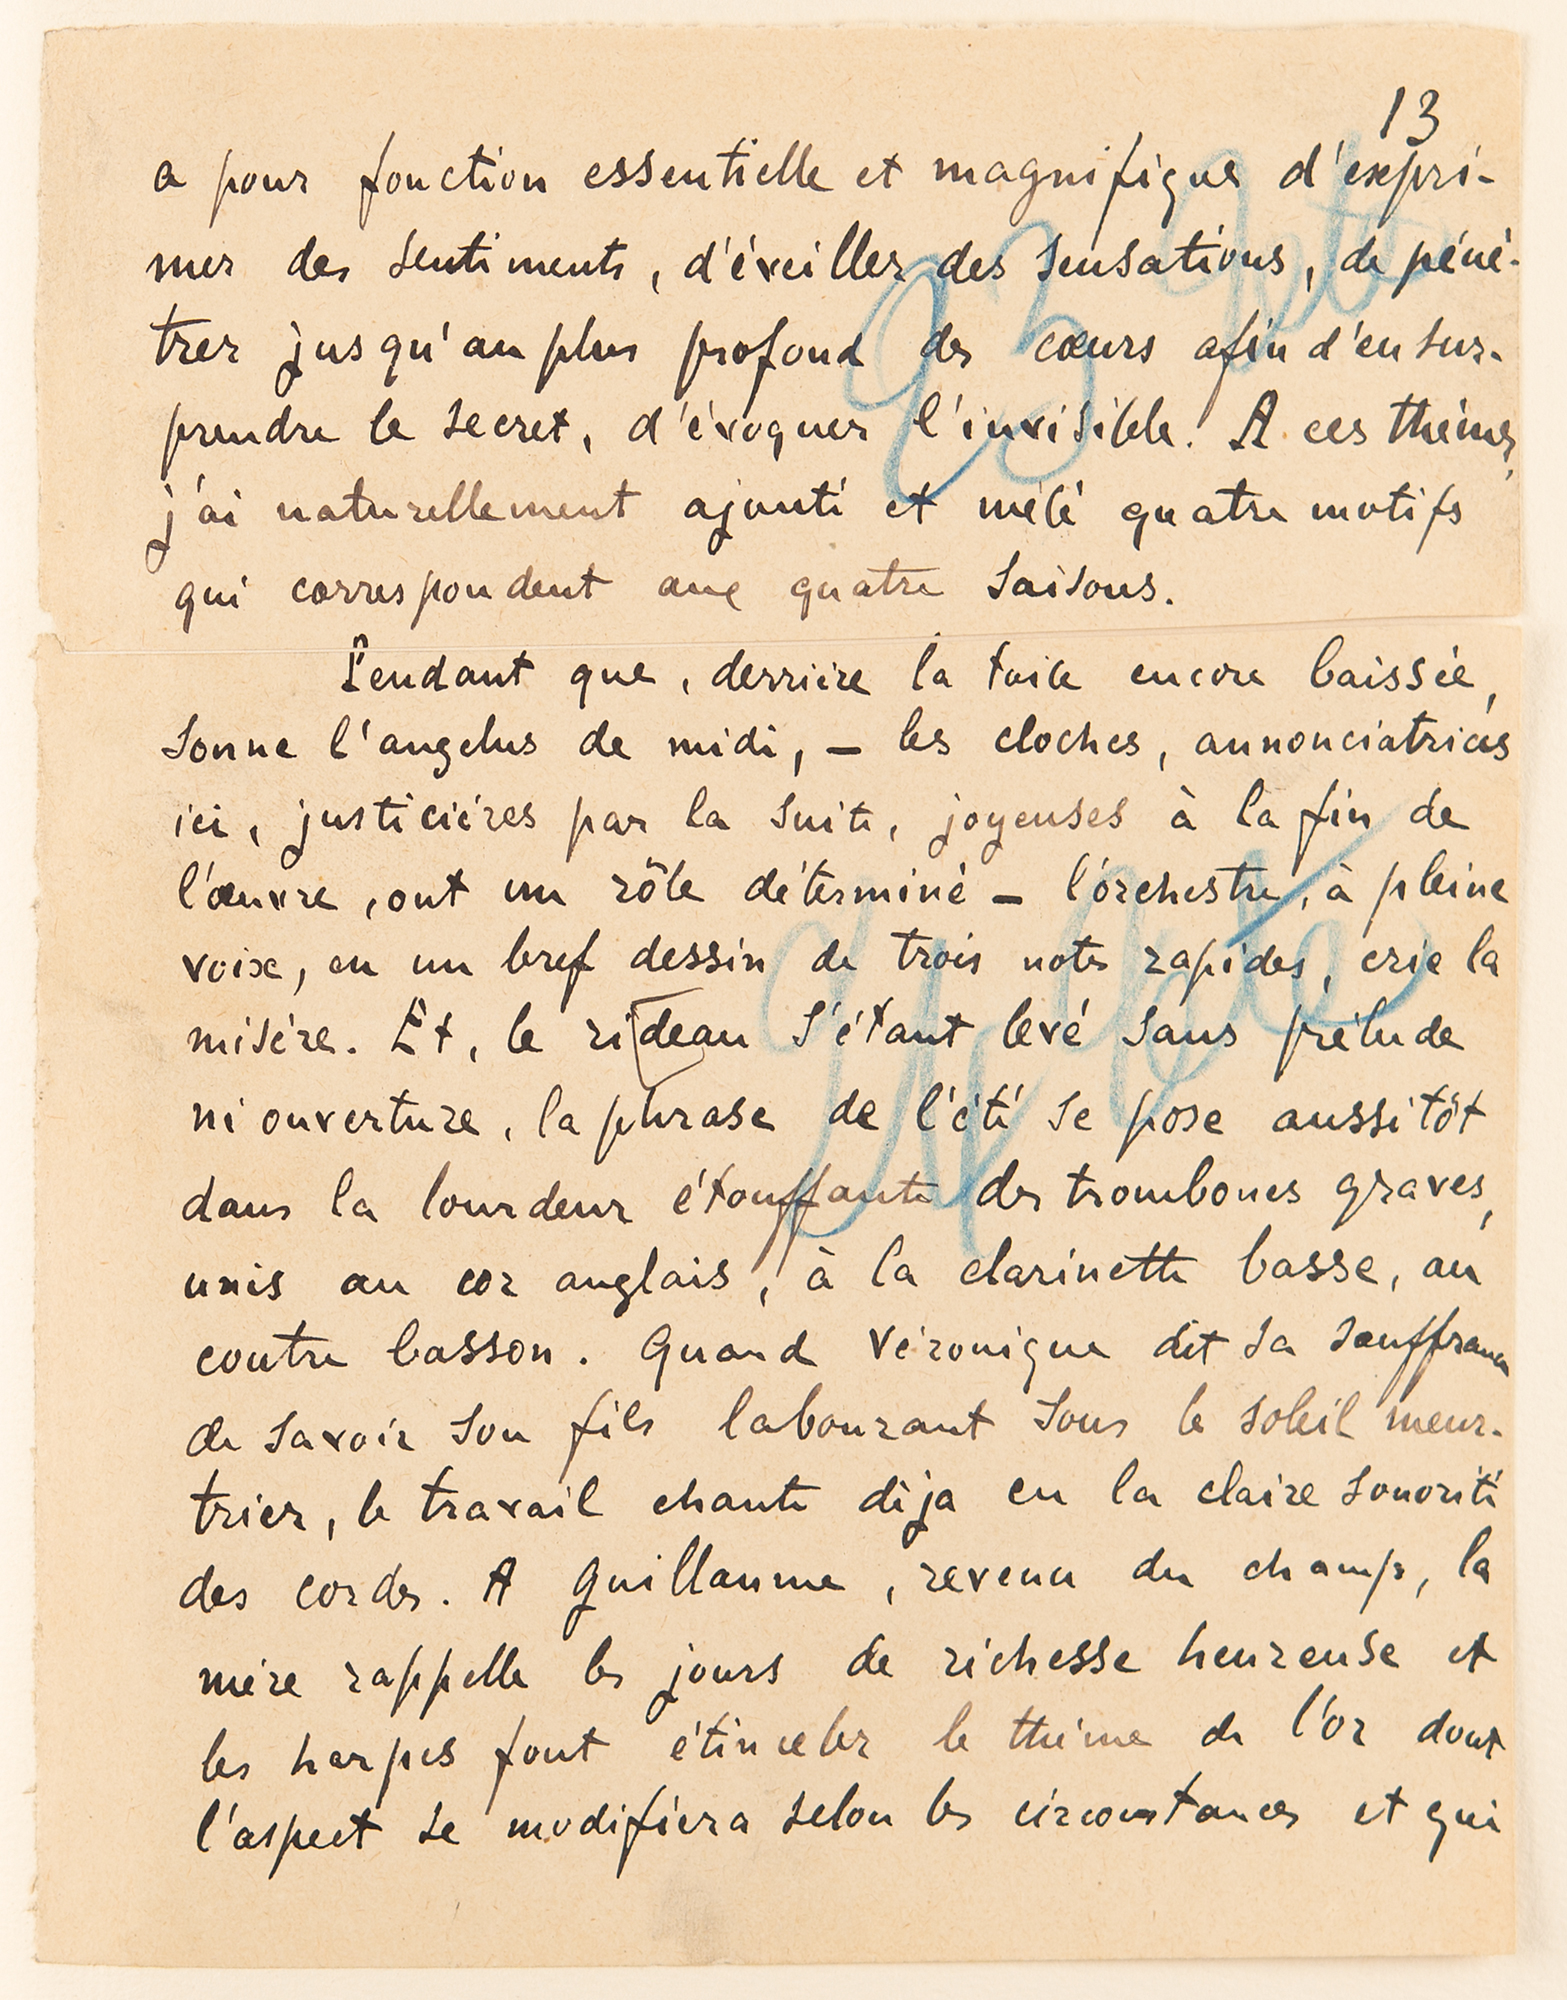 13
a pour fonction essentielle et magnifique d'expri-
mer des sentiments, d'éveiller des sensations, de péné-
trer jusqu'au plus profond des cœurs afin d'en sur-
prendre le secret, d'évoquer l'invisible. A ces thèmes,
j'ai naturellement ajouté et mêlé quatre motifs
qui correspondent aux quatre saisons.
Pendant que, derrière la toile encore baissée,
sonne l'angelus de midi, — les cloches, annonciatrices
ici, justicières par la suite, joyeuses à la fin de
l'œuvre, ont un rôle déterminé — l'orchestre, à pleine
voix, en un bref dessin de trois notes rapides, crie la
misère. Et, le rideau s'étant levé sans prélude
ni ouverture, la phrase de l'été se pose aussitôt
dans la lourdeur étouffante des trombones graves,
unis au cor anglais, à la clarinette basse, au
contre basson. Quand Véronique dit sa souffrance
de savoir son fils labourant sous le soleil meur-
trier, le travail chante déja en la claire sonorité
des cordes. A Guillaume, revenu du champ, la
mère rappelle les jours de richesse heureuse et
les harpes font étinceler le thème de l'or dont
l'aspect se modifiera selon les circonstances et qui